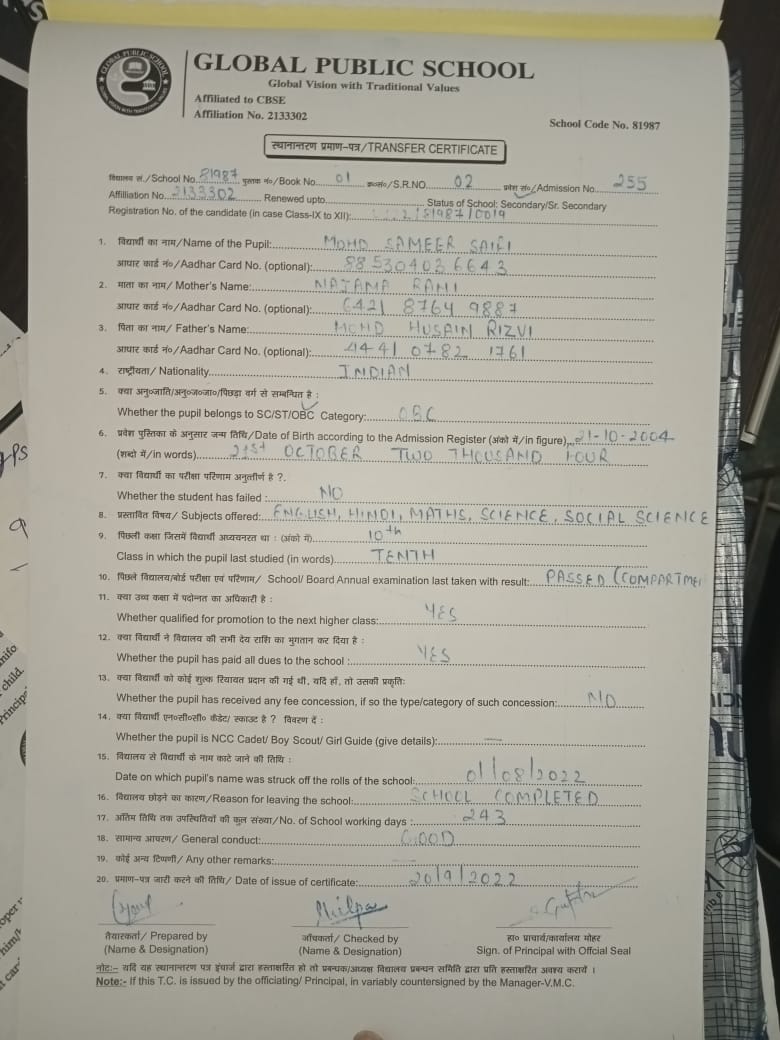 GLOBAL PUBLIC SCHOOL
Global Vision with Traditional Values
Affiliated to CBSE
Affiliation No. 2133302
School Code No. 81987
स्थानान्तरण प्रमाण-पत्र/TRANSFER CERTIFICATE
विद्यालय सं./School No. 81987 पुस्तक नं०/Book No. 01 क्र०सं०/S.R.NO. 02 प्रवेश सं०/Admission No. 255
Affilliation No. 2133302 Renewed upto. Status of School: Secondary/Sr. Secondary
Registration No. of the candidate (in case Class-IX to XII): /81987/0019
1. विद्यार्थी का नाम/Name of the Pupil: MOHD SAMEER SAIFI
आधार कार्ड नं०/Aadhar Card No. (optional): 885304036643
2. माता का नाम/ Mother's Name: NAJAMA RANI
आधार कार्ड नं०/Aadhar Card No. (optional): 6421 8764 9887
3. पिता का नाम/ Father's Name: MOHD HUSAIN RIZVI
आधार कार्ड नं०/Aadhar Card No. (optional): 4441 0782 1761
4. राष्ट्रीयता/ Nationality INDIAN
5. क्या अनु०जाति/अनु०ज०जा०/पिछड़ा वर्ग से सम्बन्धित है :
Whether the pupil belongs to SC/ST/OBC Category: OBC
6. प्रवेश पुस्तिका के अनुसार जन्म तिथि/Date of Birth according to the Admission Register (अंको में/in figure) 21-10-2004
(शब्दो में/in words) 21st OCTOBER TWO THOUSAND FOUR
7. क्या विद्यार्थी का परीक्षा परिणाम अनुत्तीर्ण है ?.
Whether the student has failed : NO
8. प्रस्तावित विषय/ Subjects offered: ENGLISH, HINDI, MATHS, SCIENCE, SOCIAL SCIENCE
9. पिछली कक्षा जिसमें विद्यार्थी अध्ययनरत था : (अंको में) 10th
Class in which the pupil last studied (in words) TENTH
10. पिछले विद्यालय/बोर्ड परीक्षा एवं परिणाम/ School/ Board Annual examination last taken with result: PASSED (COMPARTME
11. क्या उच्च कक्षा में पदोन्नत का अधिकारी है :
Whether qualified for promotion to the next higher class: YES
12. क्या विद्यार्थी ने विद्यालय की सभी देय राशि का भुगतान कर दिया है :
Whether the pupil has paid all dues to the school : YES
13. क्या विद्यार्थी को कोई शुल्क रियायत प्रदान की गई थी, यदि हाँ, तो उसकी प्रकृतिः
Whether the pupil has received any fee concession, if so the type/category of such concession: NO
14. क्या विद्यार्थी एन०सी०सी० कैडेट/ स्काउट है ? विवरण दें :
Whether the pupil is NCC Cadet/ Boy Scout/ Girl Guide (give details): —
15. विद्यालय से विद्यार्थी के नाम काटे जाने की तिथि :
Date on which pupil's name was struck off the rolls of the school: 01/08/2022
16. विद्यालय छोड़ने का कारण/Reason for leaving the school: SCHOOL COMPLETED
17. अंतिम तिथि तक उपस्थितियों की कुल संख्या/No. of School working days : 243
18. सामान्य आचरण/ General conduct: GOOD
19. कोई अन्य टिप्पणी/ Any other remarks:
20. प्रमाण-पत्र जारी करने की तिथि/ Date of issue of certificate: 20/9/2022
तैयारकर्ता/ Prepared by
(Name & Designation)
जाँचकर्ता/ Checked by
(Name & Designation)
हा० प्राचार्य/कार्यालय मोहर
Sign. of Principal with Offcial Seal
नोटः- यदि यह स्थानान्तरण पत्र इंचार्ज द्वारा हस्ताक्षरित हो तो प्रबन्धक/अध्यक्ष विद्यालय प्रबन्धन समिति द्वारा प्रति हस्ताक्षरित अवश्य करायें ।
Note:- If this T.C. is issued by the officiating/ Principal, in variably countersigned by the Manager-V.M.C.